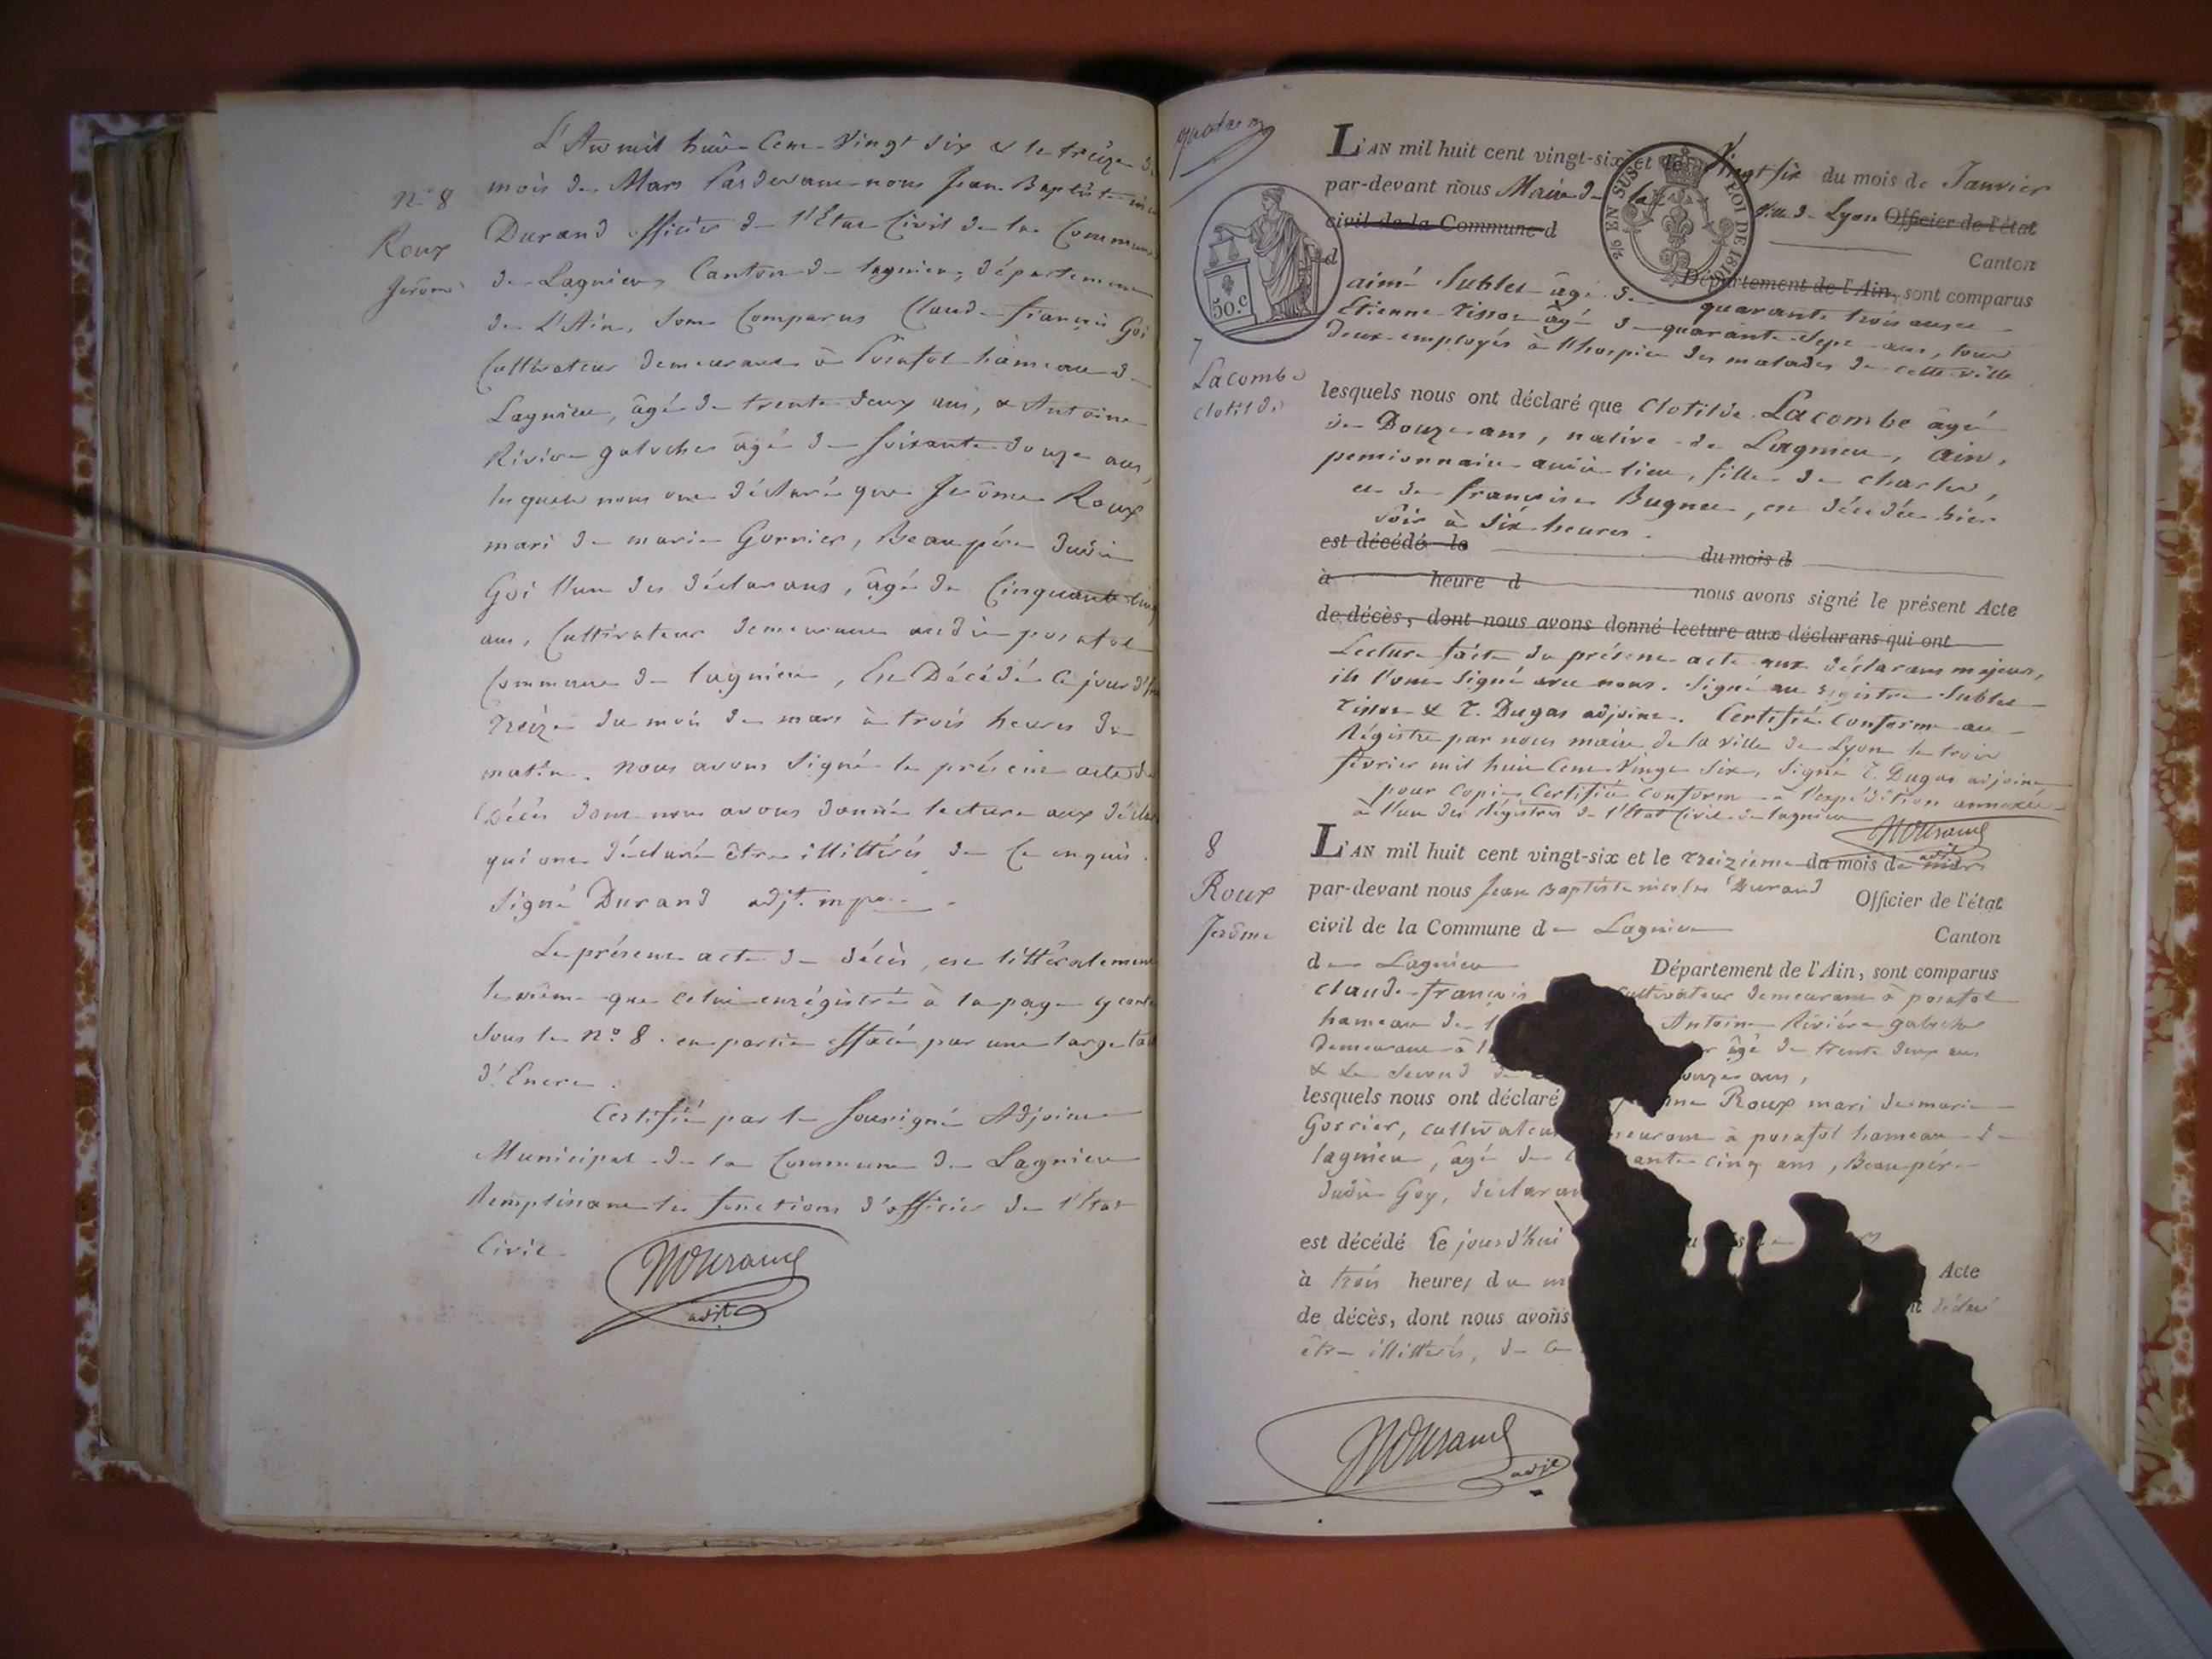 L'An mil huit Cent Vingt Six & le treize
N° 8
Roux
Jérôme
mois de Mars Pardevant nous Jean Baptiste
Durand officier de l'Etat Civil de la Commune
de Lagnieu Canton de lagnieu, département
de L'Ain, Sont Comparus Claude françois Goi
Cultivateur demeurant à Posafol hameau de
Lagnieu, âgé de trente deux ans, & Antoine
Rivière galocher âgé de Soixante douze ans,
lesquels nous ont déclaré que Jérôme Roux
mari de marie Gorrier, Beau père dudit
Goi l'un des déclarans, âgé de Cinquante cinq
ans, Cultivateur demeurant audit posafol
Commune de lagnieu, Est Décédé Ce jour d'hui
treize du mois de mars à trois heures du
matin. nous avons Signé le présent acte de
Décès dont nous avons donné lecture aux
qui ont déclaré être illittérés de Ce enquis.
Signé Durand adjt.
Le présent acte de décès, est littéralement
le même que celui enrégistré à la page
Sous le N° 8. en partie effacé par une large
d'Encre.
Certifié par le Soussigné Adjoint
Municipal de la Commune de Lagnieu
Remplissant les fonctions d'officier de l'Etat
Civil
NDurand
adjt
7
Lacombe
Clotilde
L'AN mil huit cent vingt-six et le Vingt six du mois de Janvier
par-devant nous Maire de la Ville de Lyon Officier de l'état
civil de la Commune d
Canton
d Département de l'Ain, sont comparus
aimé Sublet âgé de quarante trois ans et
Etienne Tissot âgé de quarante Sept ans, tous
deux employés à l'hospice des malades de cette ville
lesquels nous ont déclaré que Clotilde Lacombe âgée
de Douze ans, native de Lagnieu, Ain,
pensionnaire audit lieu, fille de Charles,
et de françoise Bugnet, est décédée hier
Soir à Six heures.
est décédé le du mois d
à heure d nous avons signé le présent Acte
de décès, dont nous avons donné lecture aux déclarans qui ont
Lecture faite du présent acte aux déclarans majeurs,
ils l'ont Signé avec nous. Signé au registre Sublet
Tissot & T. Dugas adjoint. Certifié Conforme au
Régistre par nous maire de la ville de Lyon le trois
février mil huit Cent Vingt Six, Signé T. Dugas adjoint
pour Copie Certifiée Conforme à l'expédition annexée
à l'un des Régistres de l'Etat Civil de lagnieu
NDurand
adjt
8
Roux
Jérôme
L'AN mil huit cent vingt-six et le treizième du mois de mars
par-devant nous Jean Baptiste nicolas Durand Officier de l'état
civil de la Commune de Lagnieu
Canton
de Lagnieu Département de l'Ain, sont comparus
Claude françois Cultivateur demeurant à posafol
hameau de Antoine Rivière galocher
demeurant à âgé de trente deux ans
& Le Second de ans,
lesquels nous ont déclaré Roux mari de marie
Gorrier, Cultivateur à posafol hameau de
lagnieu, âgé de cinq ans, Beau père
dudit Goy, déclarant
est décédé le jourd'hui
à trois heures du Acte
de décès, dont nous avons déclaré
être illittérés, de Ce
NDurand
adjt
50.c
EN SUS
LOI DE 1816